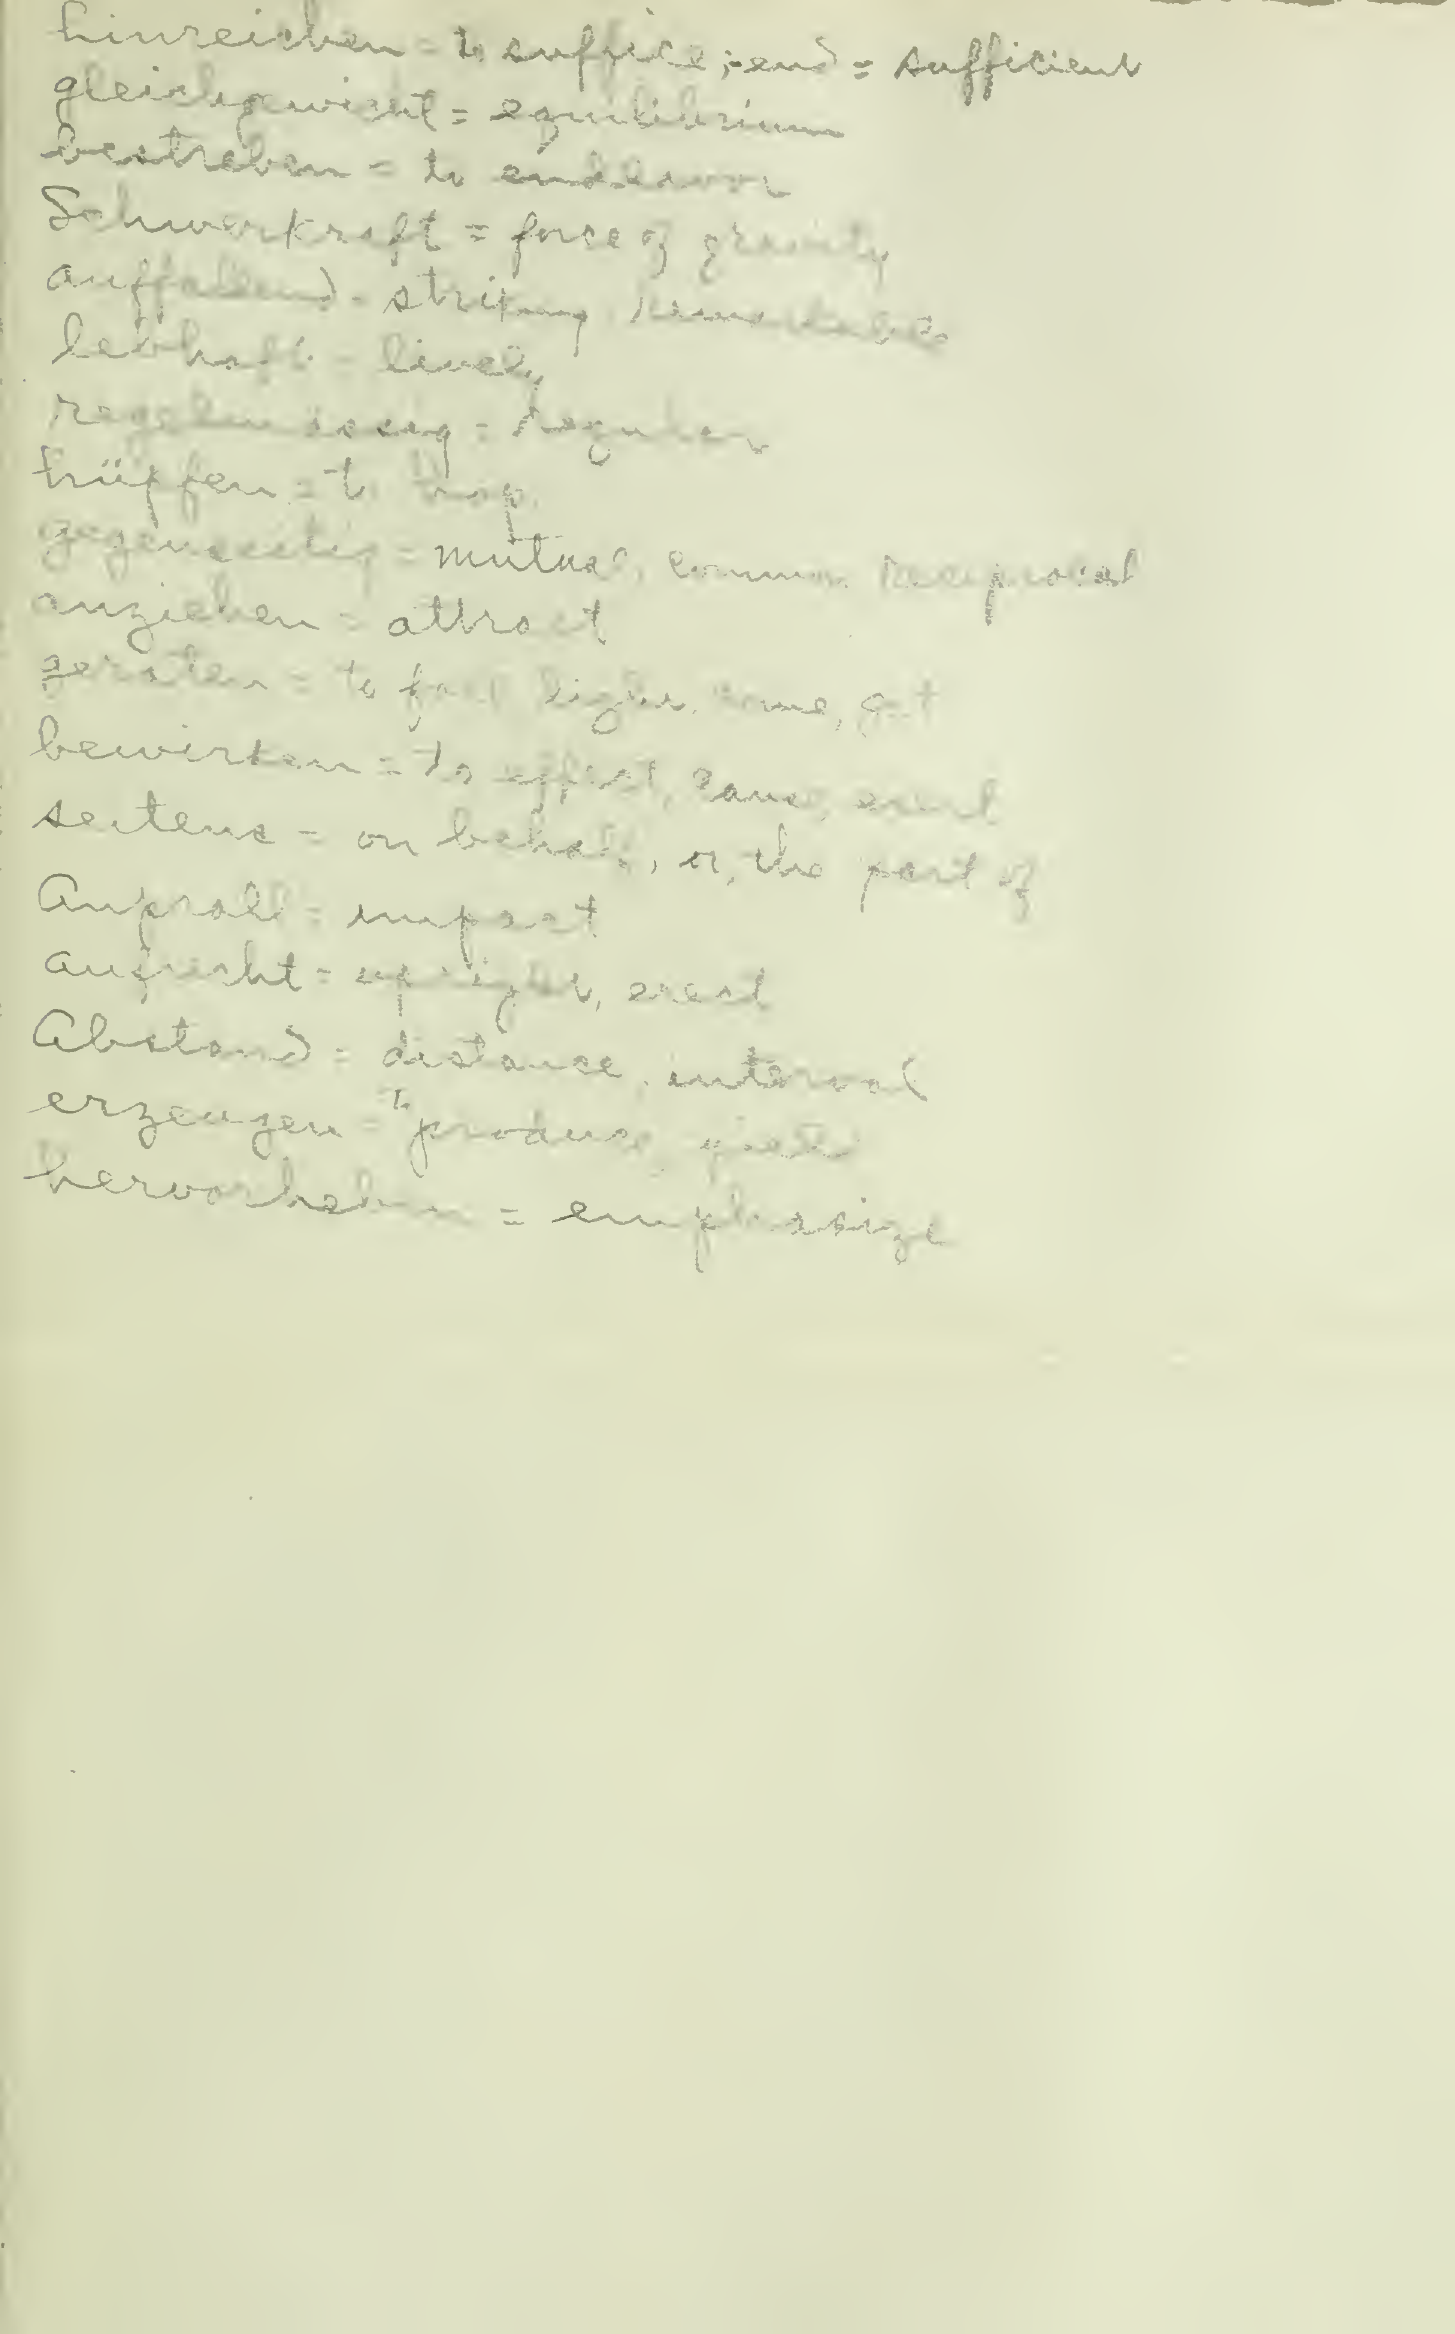 hinreichen = to suffice; -end = sufficient
gleichgewicht = equilibrium
bestreben = to endeavor
Schwerkraft = force of gravity
auffallend = striking, remarkable
lebhaft = lively
regelmässig = regular
hüpfen = to hop
gegenseitig = mutual, common, reciprocal
anziehen = attract
geraten = to fall, light, come, get
bewirken = to effect, cause, exert
seitens = on behalf, or, the part of
Anprall = impact
aufrecht = upright, erect
Abstand = distance, interval
erzeugen = to produce, yield
hervorheben = emphasize